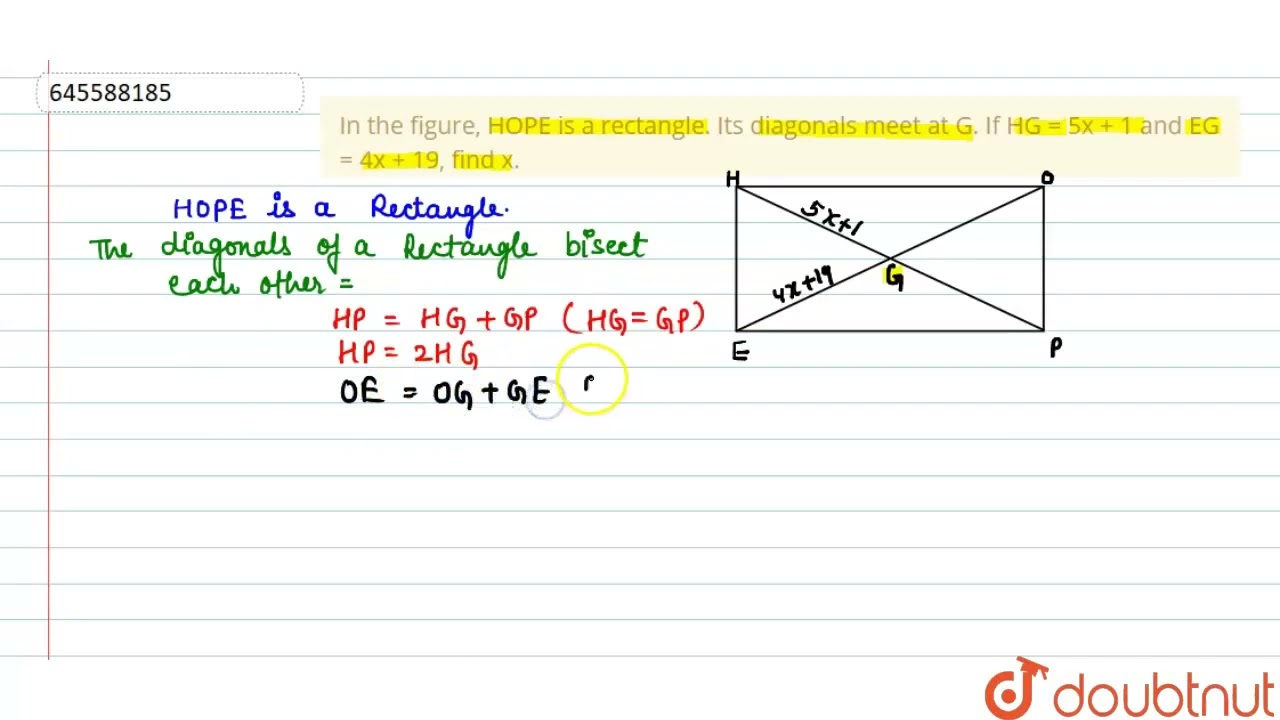 645588185
In the figure, HOPE is a rectangle. Its diagonals meet at G. If HG = 5x + 1 and EG
= 4x + 19, find x.
HOPE is a Rectangle.
The diagonals of a Rectangle bisect
each other =
HP = HG + GP (HG = GP)
HP = 2HG
OE = OG + GE
H
O
5x+1
G
4x+19
E
P
doubtnut